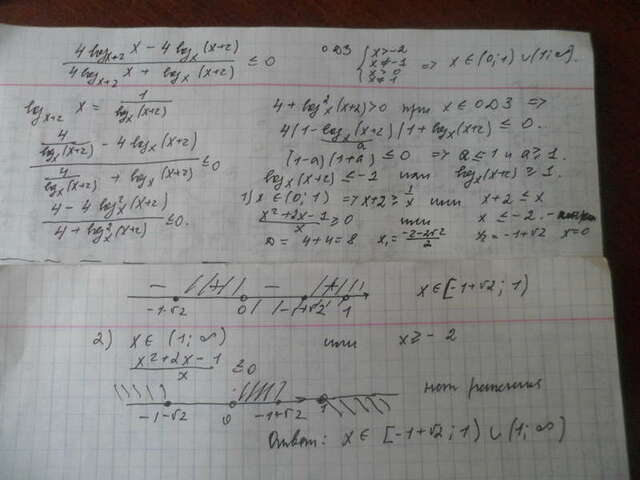 (4 log_{x+2} x − 4 log_x (x+2)) / (4 log_{x+2} x + log_x (x+2)) ≤ 0
ОДЗ { x > -2 x ≠ -1 x > 0 x ≠ 1 => x ∈ (0; 1) ∪ (1; ∞).
log_{x+2} x = 1 / log_x (x+2)
(4 / log_x (x+2) − 4 log_x (x+2)) / (4 / log_x (x+2) + log_x (x+2)) ≤ 0
(4 − 4 log_x^2 (x+2)) / (4 + log_x^2 (x+2)) ≤ 0.
4 + log_x^2 (x+2) > 0 при x ∈ ОДЗ =>
4(1 − log_x (x+2)) (1 + log_x (x+2)) ≤ 0.
a
(1−a)(1+a) ≤ 0 => a ≤ -1 и a ≥ 1.
log_x (x+2) ≤ -1 или log_x (x+2) ≥ 1.
1) x ∈ (0; 1) => x+2 ≥ 1/x или x+2 ≤ x
(x²+2x−1) / x ≥ 0 или x ≤ -2. −
D = 4+4=8 x₁ = (-2−2√2) / 2 x₂ = -1+√2 x=0
− + − +
-1-√2 0 -1+√2 1
x ∈ [-1+√2; 1)
2) x ∈ (1; ∞) или x ≥ -2
(x²+2x−1) / x ≤ 0
нет решения
-1-√2 0 -1+√2 1
Ответ: x ∈ [-1+√2; 1) ∪ (1; ∞)